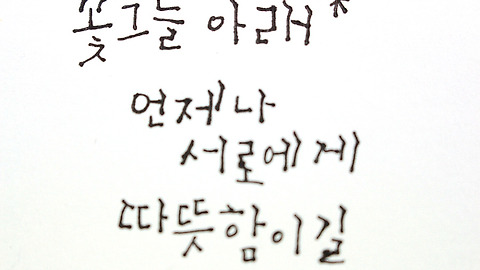 꽃그늘 아래서 *
언제나
서로에제
따뜻함이길